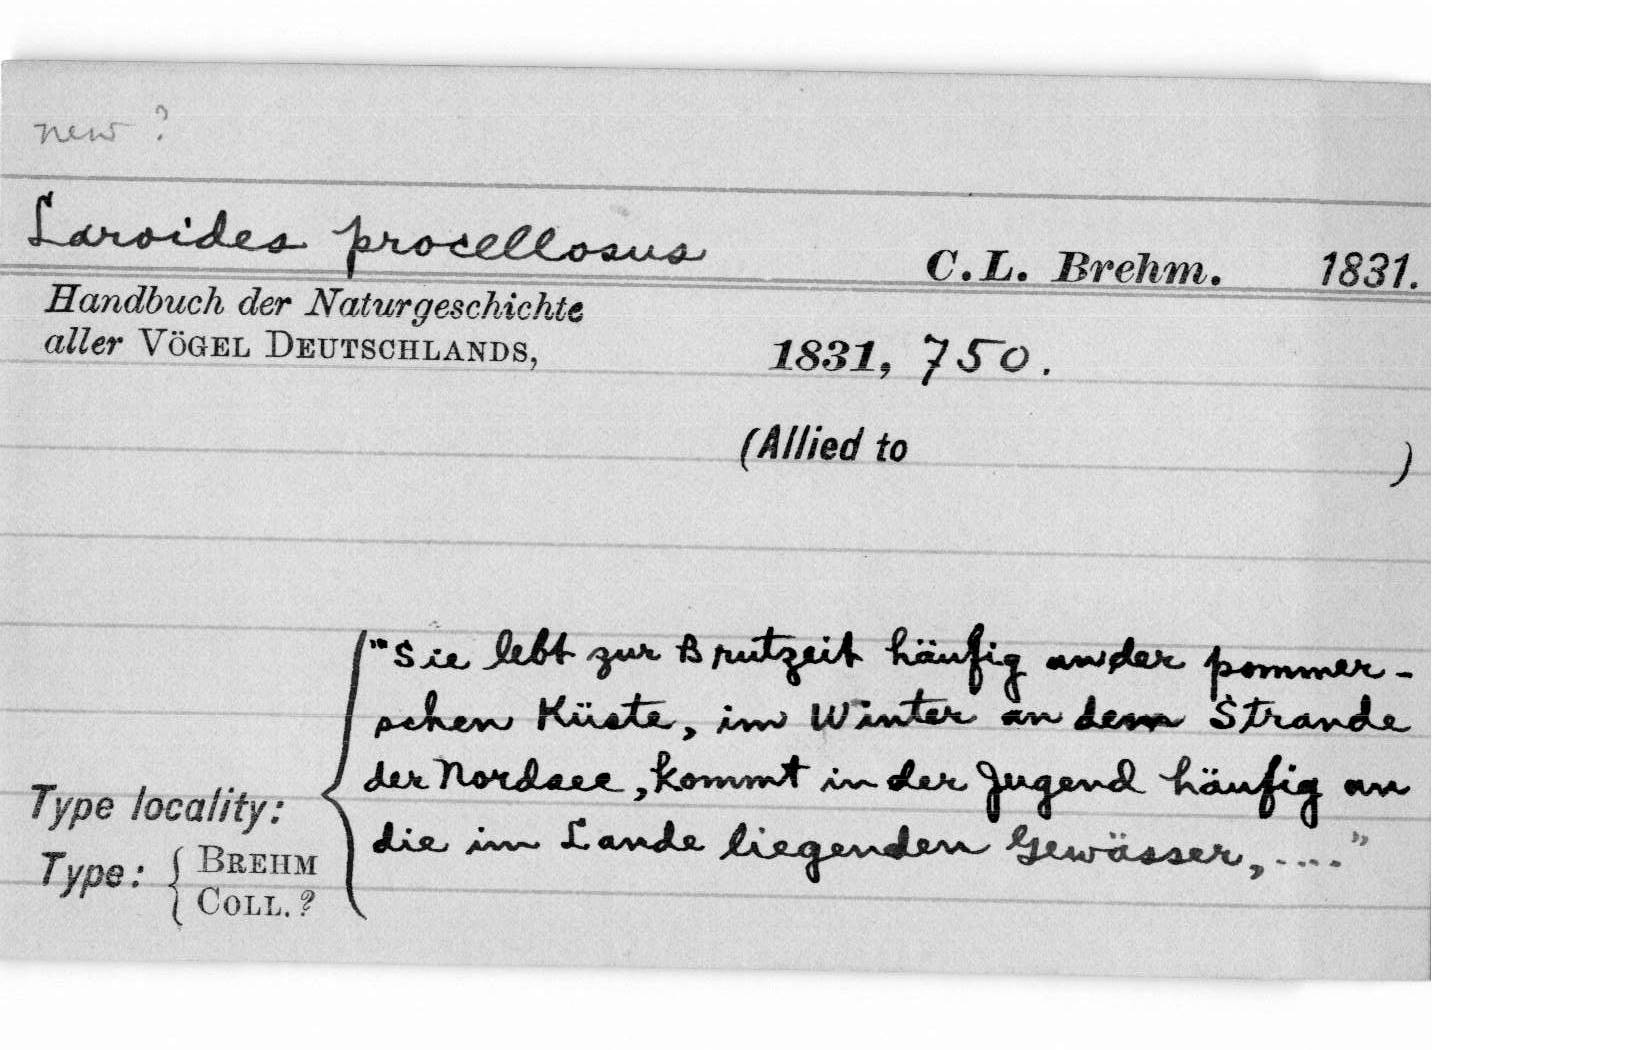 new ?
Laroides procellosus C.L. Brehm. 1831.
Handbuch der Naturgeschichte
aller VÖGEL DEUTSCHLANDS, 1831, 750.
(Allied to )
"Sie lebt zur Brutzeit häufig an der pommer-
schen Küste, im Winter an dem Strande
der Nordsee, kommt in der Jugend häufig an
Type locality:
die im Lande liegenden Gewässer, ...."
Type: { BREHM
COLL. ?